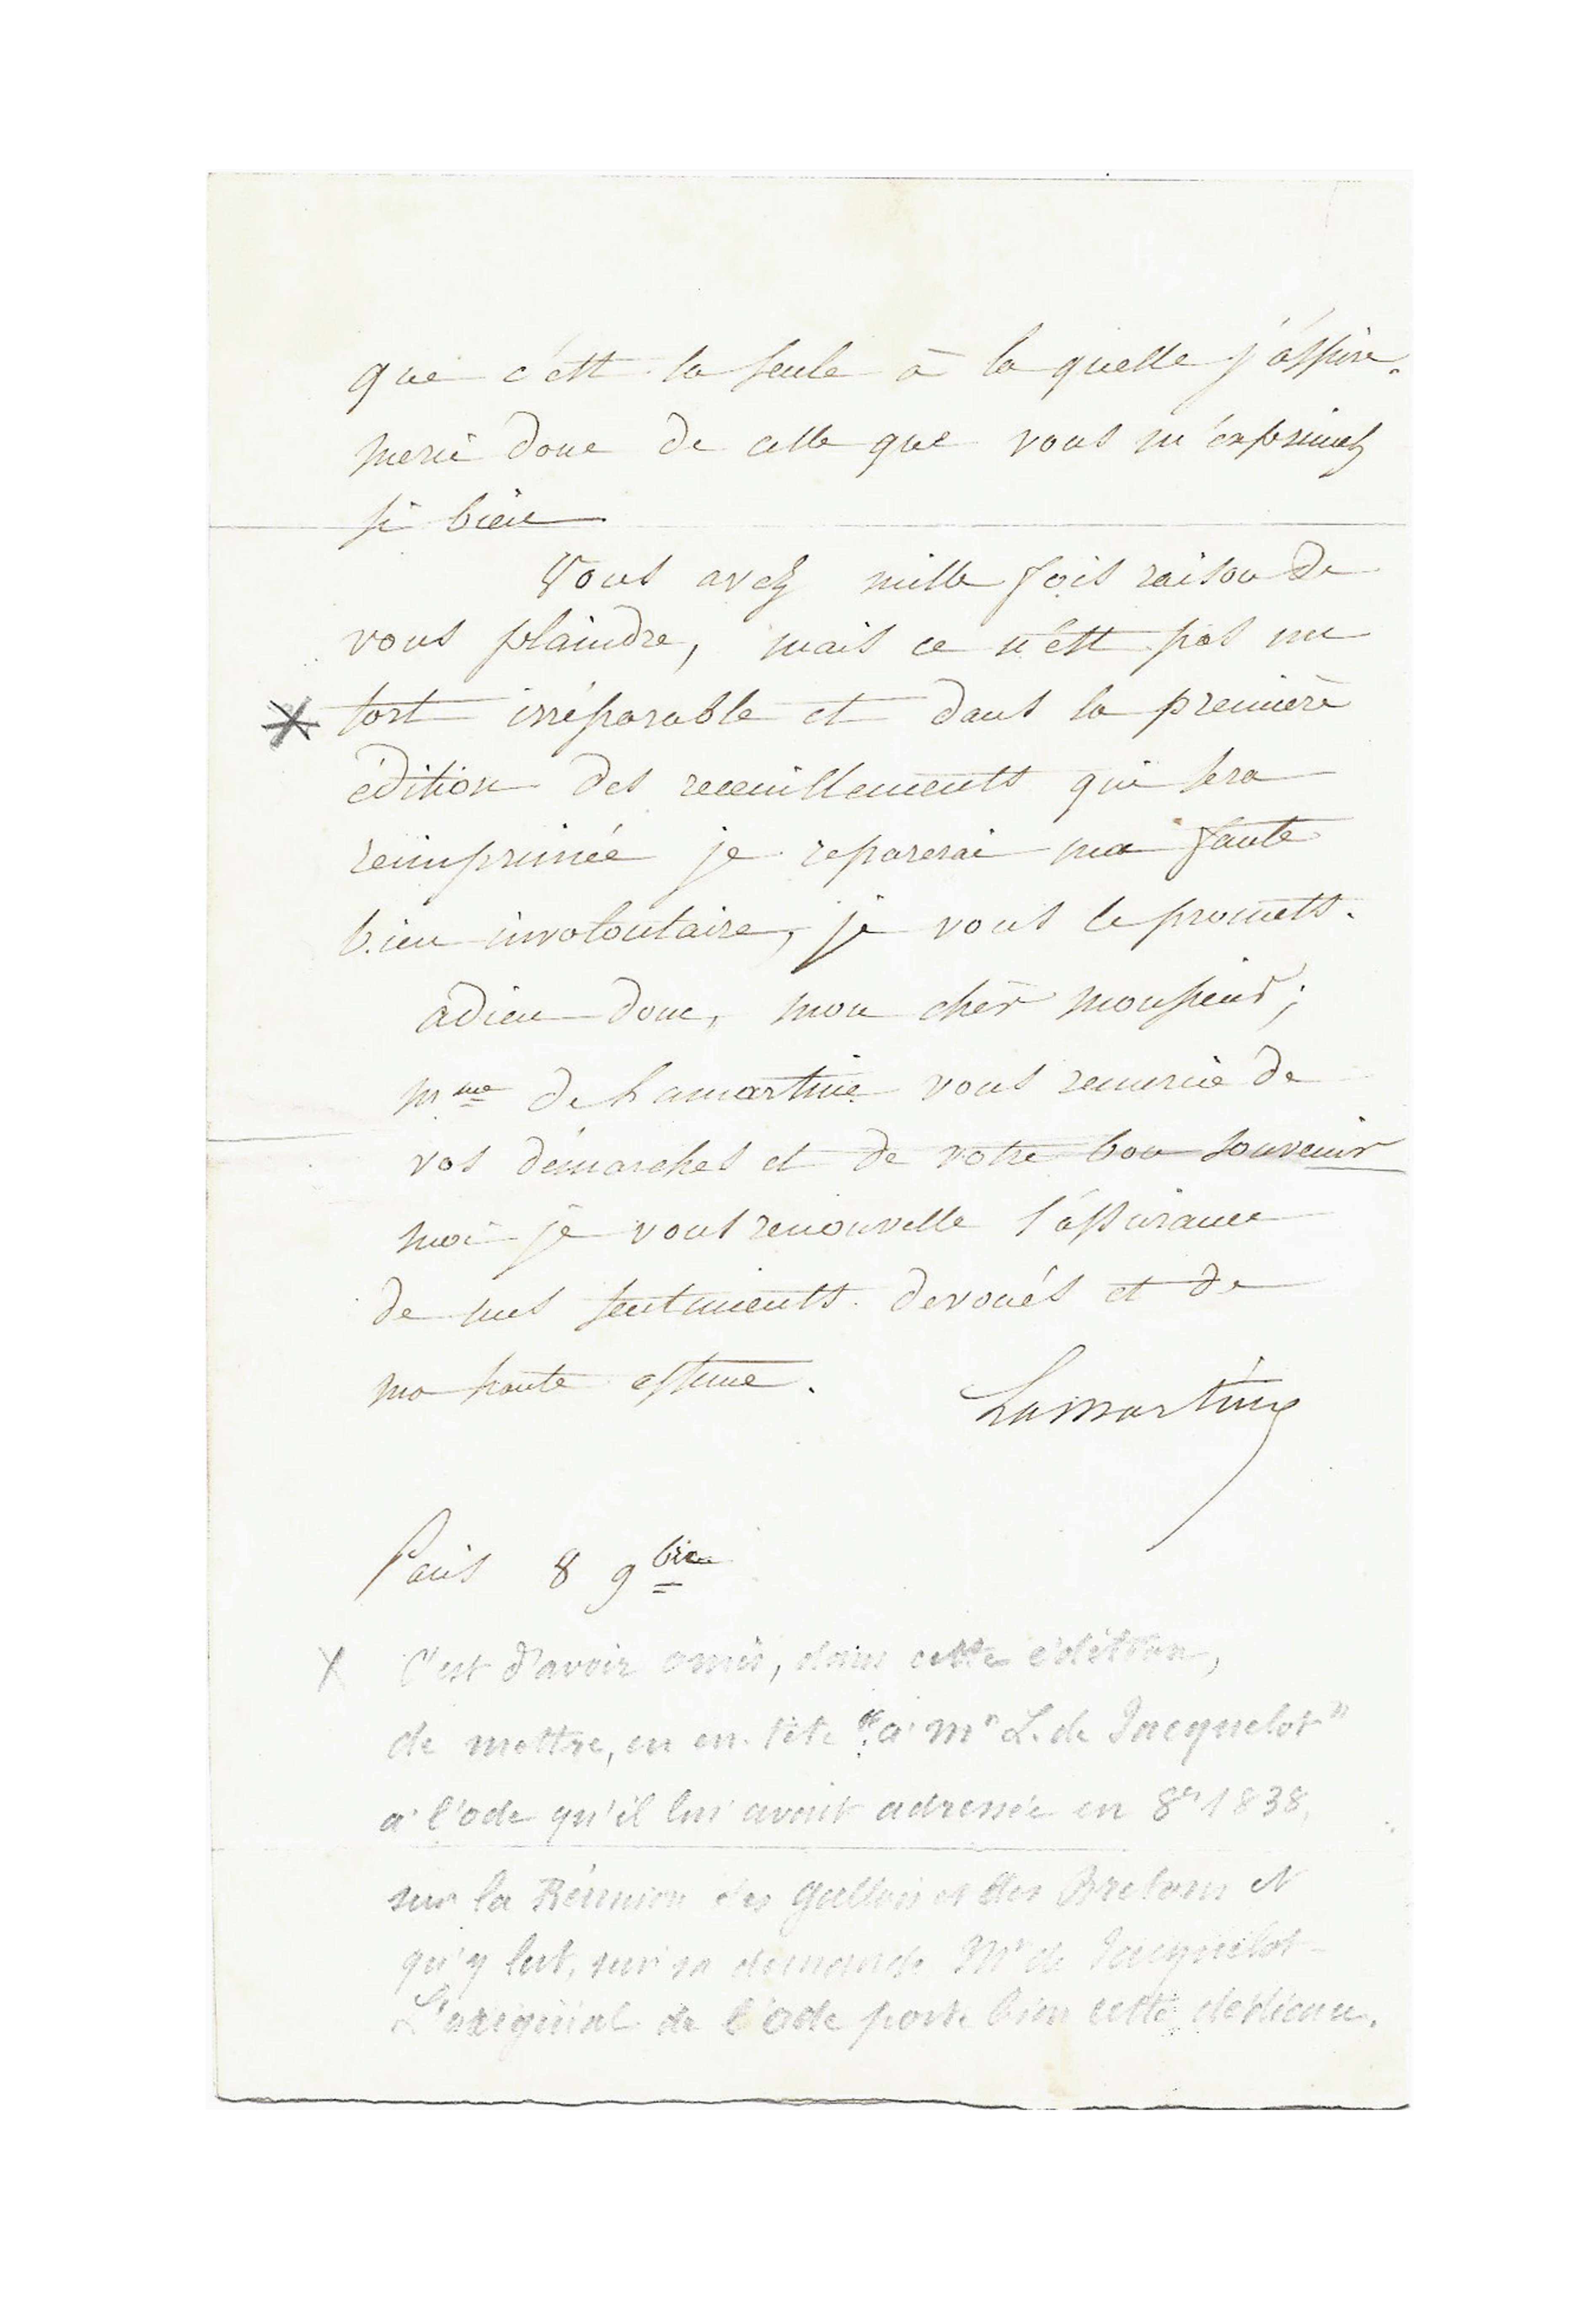 que c'est la seule à la quelle j'aspire.
merci donc de celle que vous m'exprimez
si bien
Vous avez mille fois raison de
vous plaindre, mais ce n'est pas un
* tort irréparable et dans la première
édition des receuillements qui sera
reimprimée je reparerai ma faute
bien involontaire, je vous le promets.
adieu donc, mon cher monsieur;
Mme de Lamartine vous remercie de
vos démarches et de votre bon souvenir
moi je vous renouvelle l'assurance
de mes sentiments devoués et de
ma haute estime.
Lamartine
Paris 8 9bre
X C'est d'avoir omis, dans cette édition,
de mettre, en en-tête "à Mr L. de Jacquelot"
à l'ode qu'il lui avait adressée en 8re 1838,
sur la Réunion des Gallois et des Bretons et
qu'y lut, sur sa demande Mr de Jacquelot
L'original de l'ode porte bien cette dédicace.